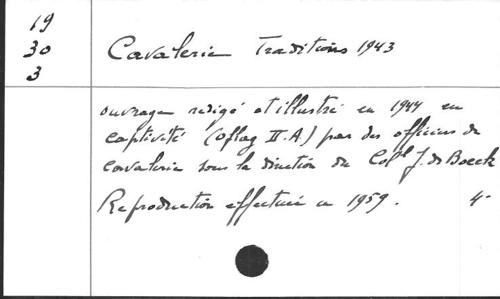 19
30
3
Cavalerie Traditions 1943
ouvrage redigé et illustré en 1944 en
captivité (oflag II.A) par des officiers de
cavalerie sous la direction du Col J. de Boeck
Reproduction effectuée en 1959. 4-